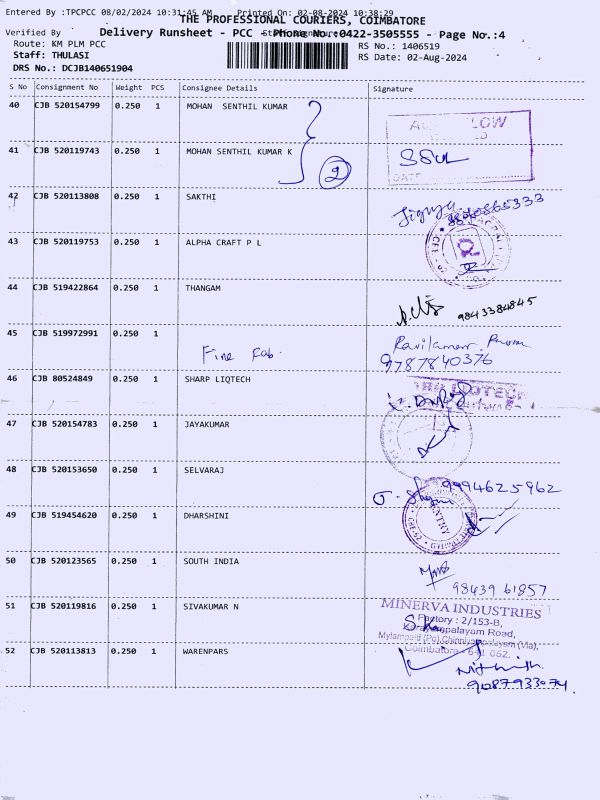 Entered By :TPCPCC 08/02/2024 10:31:45 AM Printed On: 02-08-2024 10:38:29
THE PROFESSIONAL COURIERS, COIMBATORE
Verified By
Delivery Runsheet - PCC - Phone No.:0422-3505555 - Page No.:4
Route: KM PLM PCC
RS No.: 1406519
Staff: THULASI
RS Date: 02-Aug-2024
DRS No.: DCJB140651904
S No Consignment No Weight PCS Consignee Details Signature
40 CJB 520154799 0.250 1 MOHAN SENTHIL KUMAR
41 CJB 520119743 0.250 1 MOHAN SENTHIL KUMAR K
2
DATE
42 CJB 520113808 0.250 1 SAKTHI
43 CJB 520119753 0.250 1 ALPHA CRAFT P L
44 CJB 519422864 0.250 1 THANGAM
9843384845
45 CJB 519972991 0.250 1
Fine Fab.
9787840376
46 CJB 80524849 0.250 1 SHARP LIQTECH
47 CJB 520154783 0.250 1 JAYAKUMAR
48 CJB 520153650 0.250 1 SELVARAJ
9994625962
49 CJB 519454620 0.250 1 DHARSHINI
ENTRY
50 CJB 520123565 0.250 1 SOUTH INDIA
98439 61857
51 CJB 520119816 0.250 1 SIVAKUMAR N
MINERVA INDUSTRIES
Factory : 2/153-B,
Road,
52 CJB 520113813 0.250 1 WARENPARS
Coimbatore - 641 062.
9087933074.